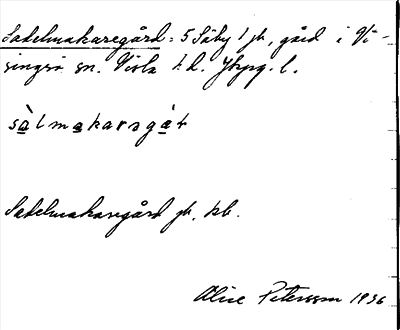 Sadelmakaregård = 5 Säby 1 jb, gård i Vi-
singsö sn. Vista hd. Jkpg. l.
sàlmakaragàɽ
Sadelmakaregård jb, kb.
Alice Petersson 1936